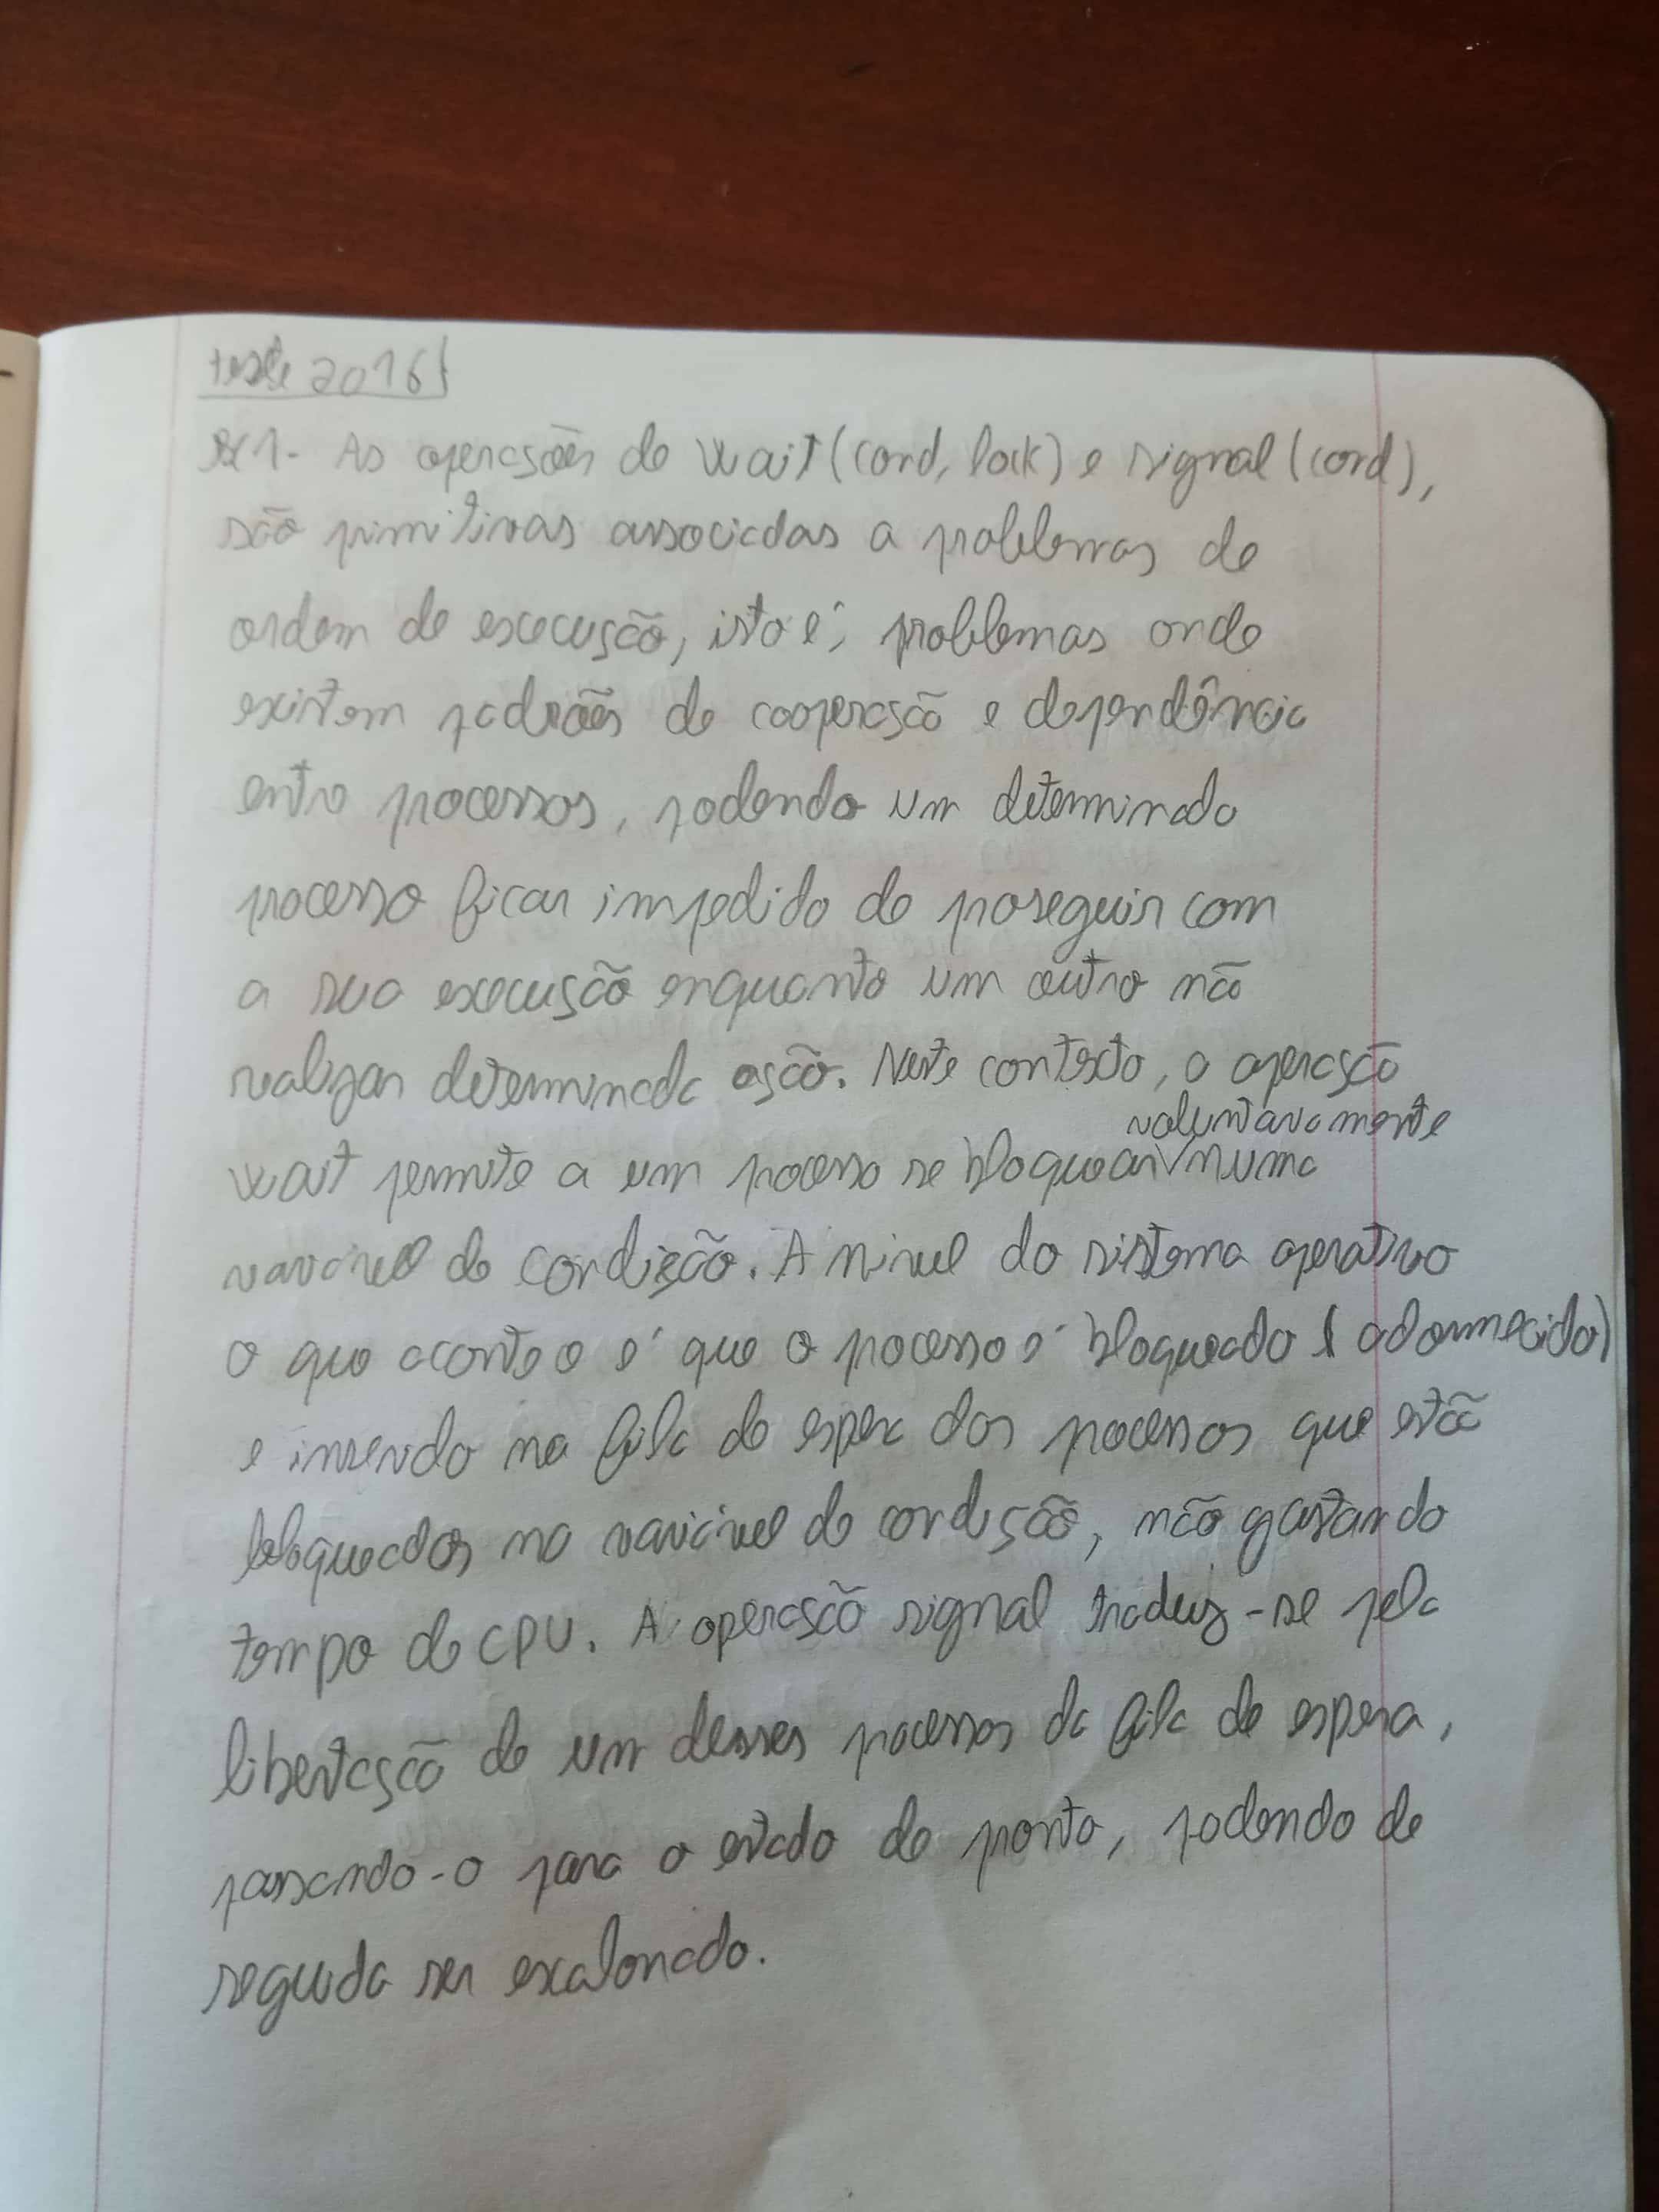 teste 2016
1- As operações de wait(cond, lock) e signal(cond),
são primitivas associadas a problemas de
ordem de execução, isto é, problemas onde
existem padrões de cooperação e dependência
entre processos, podendo um determinado
processo ficar impedido de proseguir com
a sua execução enquanto um outro não
realizar determinada ação. Neste contexto, a operação
voluntariamente
wait permite a um processo se bloquear numa
variável de condição. A nível do sistema operativo
o que acontece é que o processo é bloqueado (adormecido)
e inserido na fila de espera dos processos que estão
bloqueados na variável de condição, não gastando
tempo de CPU. A operação signal traduz-se pela
libertação de um desses processos da fila de espera,
passando-o para o estado de pronto, podendo de
seguida ser escalonado.